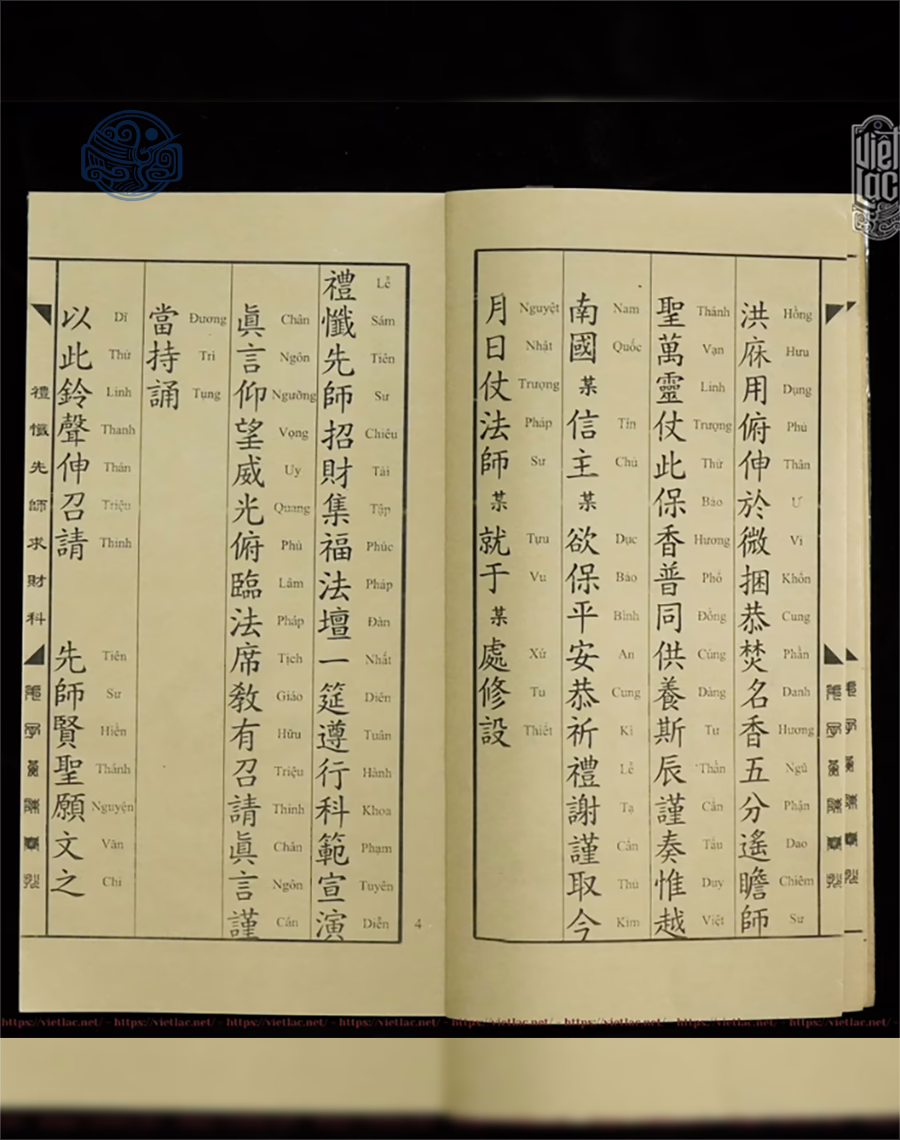 Hồng Hưu Dụng Phủ Thân Ư Vi Khổn Cung Phần Danh Hương Ngũ Phận Dao Chiêm Sư
洪庥用俯伸於微捆恭焚名香五分遙瞻師
Thánh Vạn Linh Trượng Thử Bảo Hương Phổ Đồng Cúng Dàng Tư Thần Cẩn Tấu Duy Việt
聖萬靈仗此保香普同供養斯辰謹奏惟越
Nam Quốc Tín Chủ Dục Bảo Bình An Cung Kì Lễ Tạ Cẩn Thủ Kim
南國某信主某欲保平安恭祈禮謝謹取今
Nguyệt Nhật Trượng Pháp Sư Tựu Vu Xứ Tu Thiết
月日仗法師某就于某處修設
Lễ Sám Tiên Sư Chiêu Tài Tập Phúc Pháp Đàn Nhất Diên Tuân Hành Khoa Phạm Tuyên Diễn
禮懺先師招財集福法壇一筵遵行科範宣演
Chân Ngôn Ngưỡng Vọng Uy Quang Phủ Lâm Pháp Tịch Giáo Hữu Triệu Thỉnh Chân Ngôn Cẩn
眞言仰望威光俯臨法席敎有召請眞言謹
Đương Trì Tụng
當持誦
Dĩ Thử Linh Thanh Thân Triệu Thỉnh Tiên Sư Hiền Thánh Nguyện Văn Chi
以此鈴聲伸召請 先師賢聖願文之
禮懺先師求財科
4
Việt Lạc
https://vietlac.net/ - https://vietlac.net/ - https://vietlac.net/ - https://vietlac.net/ - https://vietlac.net/ - https://vietlac.net/ - https://vietlac.net/ - https://vietlac.net/